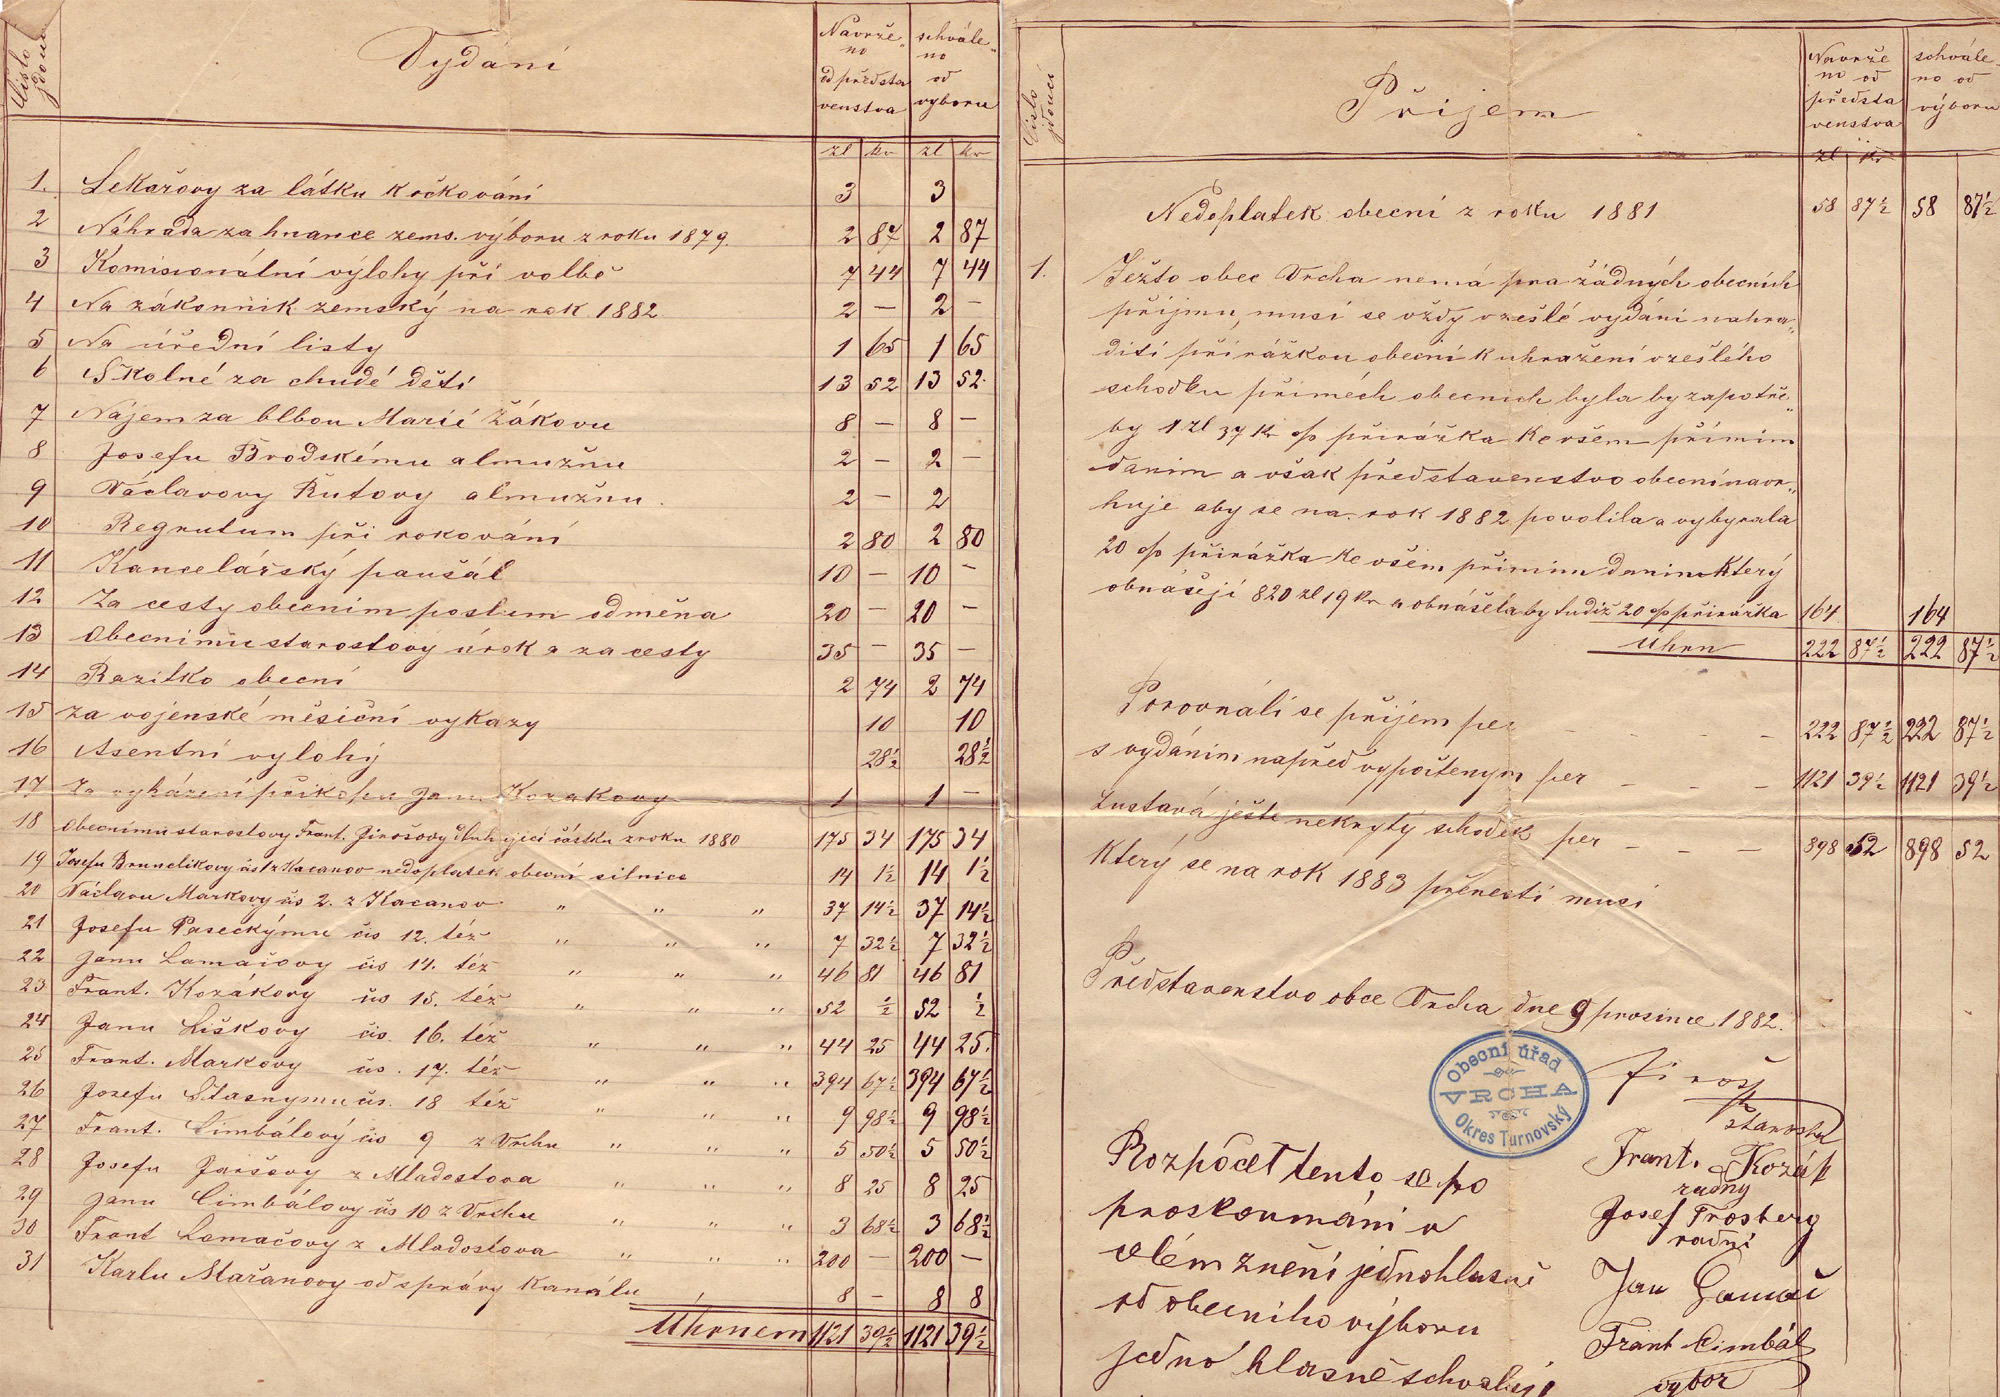 Číslo jdoucí
Vydání
Navrže-
no
od představenstva
schvále-
no
od
vyboru
zl kr zl kr
1. Lekařovy za látku k očkování 3 3
2 Náhrada za hnance zems. výboru z roku 1879. 2 87 2 87
3 Komisionální výlohy při volbě 7 44 7 44
4 Na zákonník zemský na rok 1882 2 — 2 —
5 Na úřední listy 1 65 1 65
6 Školné za chudé děti 13 52 13 52
7 Nájem za blbou Marii Žákovu 8 — 8 —
8 Josefu Brodskému almužnu 2 — 2 —
9 Václavovy Rutovy almužnu 2 — 2
10 Regrutum při rokování 2 80 2 80
11 Kancelářský paušál 10 — 10 —
12 Za cesty obecním poslum odměna 20 — 20 —
13 Obecnimu starostovy úrok a za cesty 35 — 35 —
14 Razítko obecní 2 74 2 74
15 Za vojenské měsíční vykazy 10 10
16 Asentní vylohy 28½ 28½
17 Za vyházení příkopu Janu Kozakovy 1 1 —
18 Obecnímu starostovy Frant. Jirošovy dluhující částku z roku 1880 175 34 175 34
19 Josefu Brunclikovy čís 1 z Kacanov nedoplatek obecní silnice 14 1½ 14 1½
20 Václavu Markovy čís 2. z Kacanov " " " 37 14½ 37 14½
21 Josefu Paseckýmu čís 12. též " " " 7 32½ 7 32½
22 Janu Lamačovy čís 14. též " " " 46 81 46 81
23 Frant. Kozakovy čís 15. též " " " 52 ½ 52 ½
24 Janu Liškovy čís. 16. též " " " 44 25 44 25.
25 Frant. Markovy čís. 17. též " " " 394 67½ 394 67½
26 Josefu Stasnymu čís. 18 též " " " 9 98½ 9 98½
27 Frant. Cimbálový čís 9 z Vrchu " " " 5 50½ 5 50½
28 Josefu Jaršovy z Mladostova " " " 8 25 8 25
29 Janu Cimbálovy čís 10 z Vrchu " " " 3 68½ 3 68½
30 Frant Lamačovy z Mladostova " " " 200 — 200 —
31 Karlu Mařanovy od správy kanálu 8 — 8 8
Uhrnem 1121 39½ 1121 39½
Číslo jdoucí
Příjem
Navrže
no od
předsta
venstva
schvále-
no od
výboru
zl kr
Nedoplatek obecní z roku 1881 58 87½ 58 87½
1. Ježto obec Vrcha nemá pra žádných obecních
příjmu, musí se vždy vzešlé vydání nahra-
diti přirážkou obecní k uhražení vzešlého
schodku přímech obecních byla by zapotře-
by 1 zl 37 Kr % přirážka ke všem přímim
danim a však představenstvo obecní navr-
huje aby se na rok 1882 povolila a vybyrala
20 % přirážka ke všem přímim danim který
obnášejí 820 zl 19 kr a obnášela by tudíž 20 % přirážka 164 164
Uhrn 222 87½ 222 87½
Porovnáli se příjem per — — — — 222 87½ 222 87½
s vydáním napřed vypočtenym per — — — 1121 39½ 1121 39½
zustavá ješte nekrytý schodek per — — — 898 52 898 52
Který se na rok 1883 přenesti musí
Představenstvo obce Vrcha dne 9 prosince 1882.
Obecní úřad
VRCHA
Okres Turnovský
Jiroš
starosta
Frant. Kozák
radny
Josef Frosberg
radní
Jan Lamač
Frant Cimbál
vybor
Rozpočet tento se po
proskoumáni v
celém znění jednohlasně
od obecního výboru
jedno hlasně schvaluje